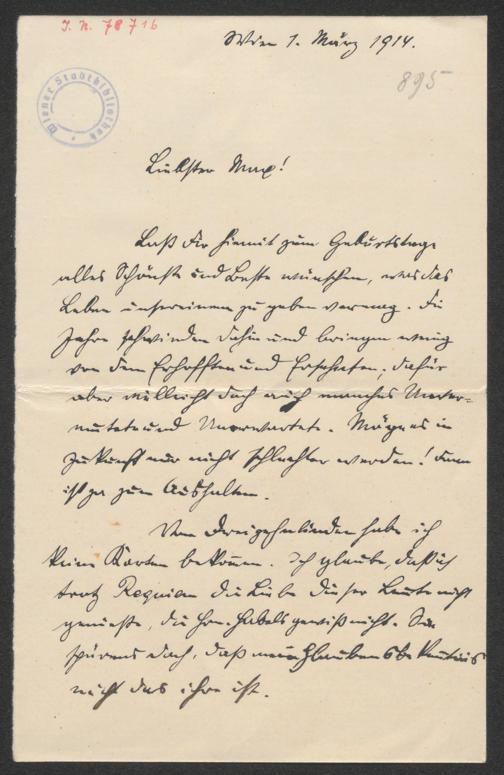 I. N. 78716
Wien 1. März 1914.
895
Wiener Stadtbibliothek
Liebster Max!
Laß Dir hiemit zum Geburtstage
alles Schönste und Beste wünschen, was das
Leben unsereinem zu geben vermag. Die
Jahre schwinden dahin und bringen wenig
von dem Erhofften und Ersehnten; dafür
aber vielleicht doch auch manches Unver-
mutete und Unerwartete. Mög es in
Zukunft nur nicht schlechter werden! Dann
ist ja zum Aushalten.
Von Dreizehnlinden habe ich
keine Karten bekommen. Ich glaube, daß ich
trotz Requiem die Liebe dieser Leute nicht
genieße, die Hrn. Habels gewiß nicht. Sie
spürens doch, daß mein Glaubensbekenntnis
nicht das ihre ist.